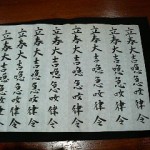 立春大吉喼急如律令
立春大吉喼急如律令
立春大吉喼急如律令
立春大吉喼急如律令
立春大吉喼急如律令
立春大吉喼急如律令
立春大吉喼急如律令
立春大吉喼急如律令